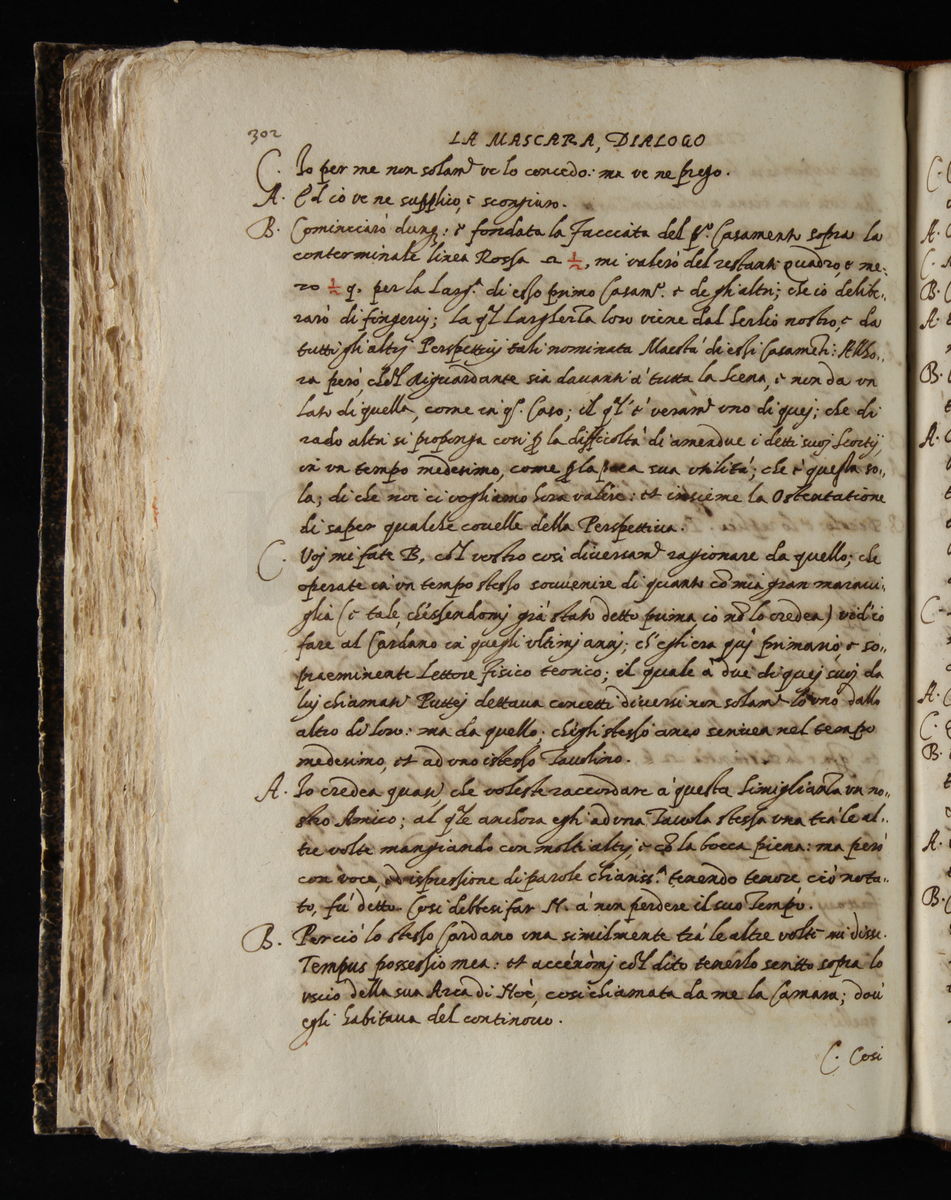 302
LA MASCARA, DIALOGO
C. Io per me non solam.te ve lo concedo: ma ve ne prego.
A. Ed ciò ve ne supplico, e scongiuro.
B. Cominciarò dunq;: e fondata la Facciata del p.o Casamento sopra la
conterminale linea Rossa 1/2, mi valerò del restante quadro, e me-
zo 1/2 q. per la Larg.a di esso primo Casam.o e de gli altri; che iò delibe-
rarò di fingervi; la q̃l Largherza loro viene dal Serlio nostro, e da
tutti gli altrj Perspettivj tali nominata Maestà di essi Casamẽti: Allho-
ra però, ch'il Riguardante sia davanti à tutta la scena, e non da un
lato di quella, come in q.o Caso; il q̃l è veram.te uno di quej; che di
rado altri si proponga così p̱ la difficoltà di amendue i detti suoj scortij
in un tempo medesimo, come p̱ la poca sua utilità; che è questa so-
la; di che noi ci vogliamo hora valere: et insieme la Ostentatione
di saper qualche covelle della Perspettiva.
C. Voj mi fate B, cõl vostro così diversam.te ragionare da quello; che
operate in un tempo stesso souvenire di quanto cõ mia gran maravi-
glia (e tale, ch'essendomj già stato detto prima io nõ lo credea) vid'io
fare al Cardano in quegli ultimj annj; ch'egli era quj primario e so-
praeminente Lettore fisico teorico; il quale à due di quej suoj da
luj chiamati Puttej dettava concetti diversi non solam.te lo uno dallo
altro di loro: ma da quello; ch'egli stesso anco scrivea nel tempo
medesimo, et ad uno istesso Tavolino.
A. Io credea quasi che voleste raccordare à questa simiglianza un no-
stro Amico; al q̃le anchora egli ad una Tavola stessa una trà le al-
tre volte mangiando con molti altrj, e cõ la bocca piena: ma però
con voce, ed ispressione di parole chiariss.a tenendo tenore ciò nota-
to, fù detto. Così debbesi far N. à non perdere il suo Tempo.
B. Perciò lo stesso Cardano una similmente trà le altre volte mi disse.
Tempus possessio mea: et accẽnòmj cõl dito tenerlo scritto sopra lo
uscio della sua Arca di Noè, così chiamata da me la Camara; dov'
egli habitava del continovo.
C. Così